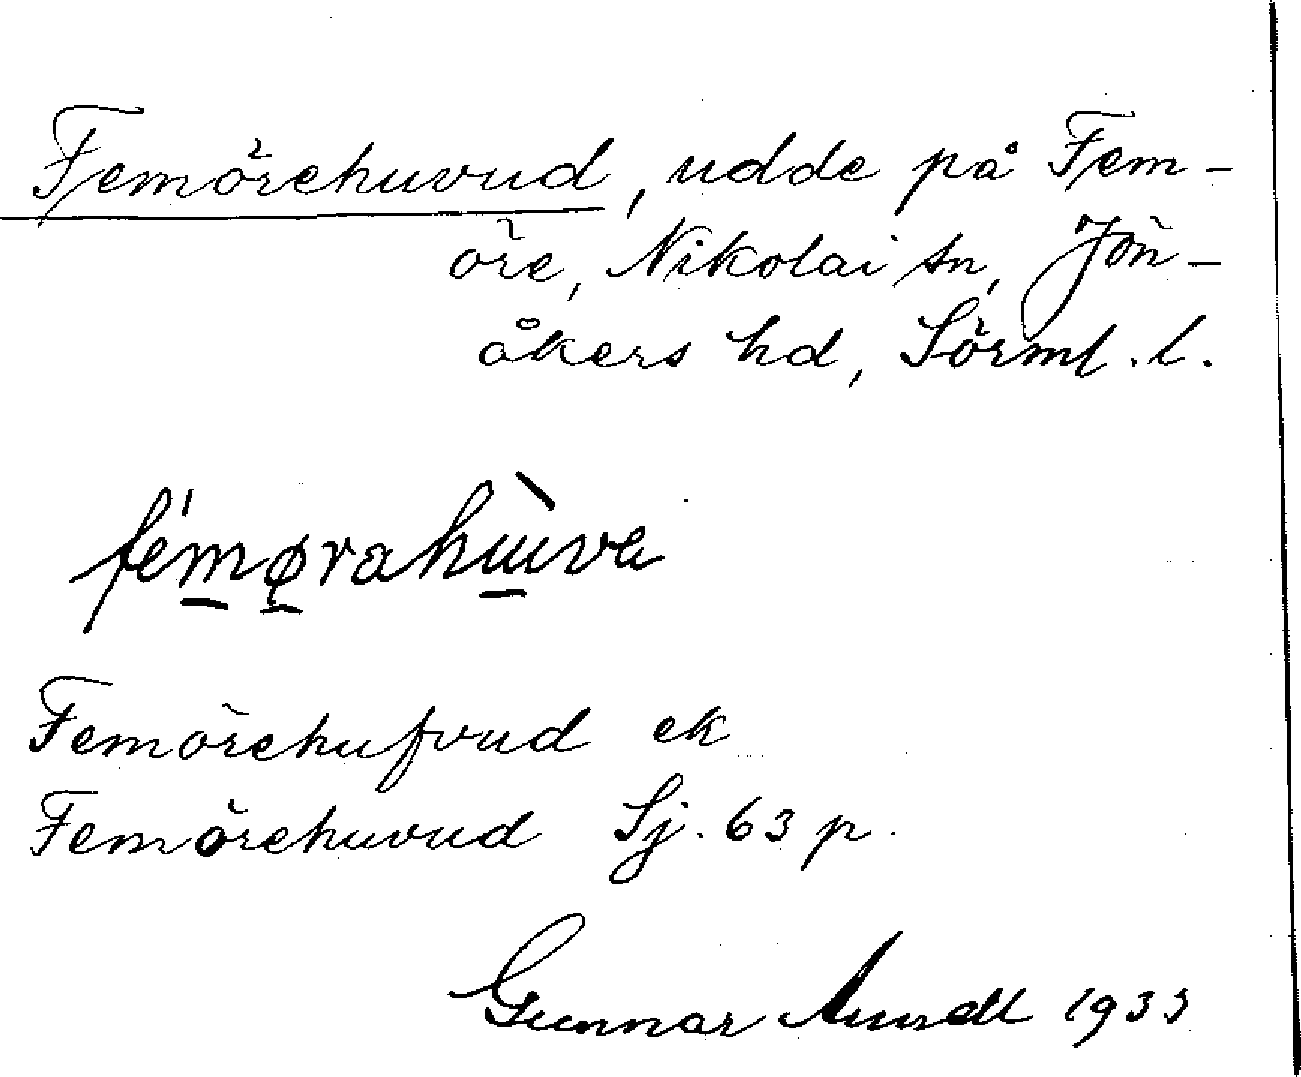 Femörehuvud, udde på Fem-
öre, Nikolai sn, Jön-
åkers hd, Sörml. l.
fémørahùva
Femörehufvud ek
Femörehuvud Sj. 63 p.
Gunnar 1933